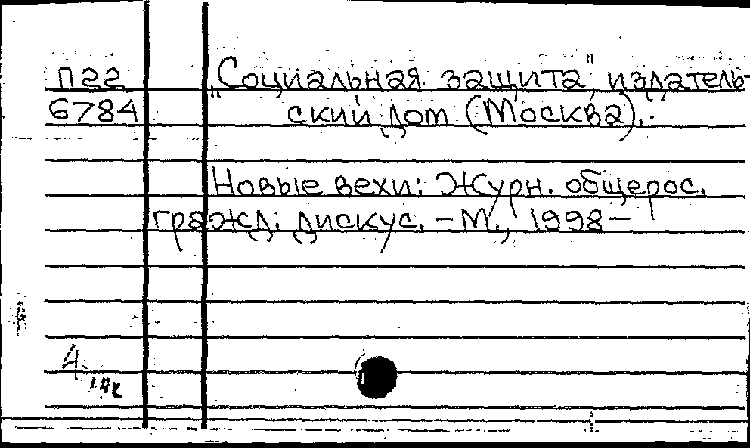 П22 "Социальная защита", издатель-
6784 ский дом (Москва).
Новые вехи: Журн. общерос.
гражд. дискус. – М., 1998 –